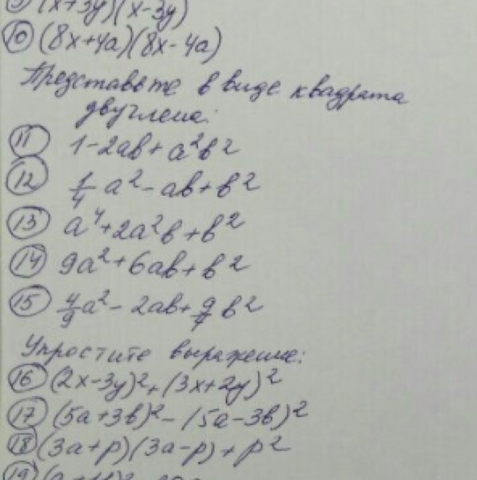 9) (x+3y)(x-3y)
10) (8x+4a)(8x-4a)
Представьте в виде квадрата
двучлена:
11) 1-2ab+a²b²
12) 1/4 a²-ab+b²
13) a⁴+2a²b+b²
14) 9a²+6ab+b²
15) 4/9 a²-2ab+9/4 b²
Упростите выражение:
16) (2x-3y)²+(3x+2y)²
17) (5a+3b)²-(5a-3b)²
18) (3a+p)(3a-p)+p²
19)